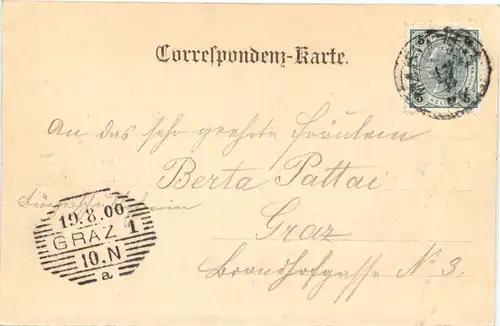 Correspondenz-Karte.
An das sehr geehrte Fräulein
Berta Pattai
19.8.00
GRAZ 1
10.N
a
Graz
Brandhofgasse No 3.